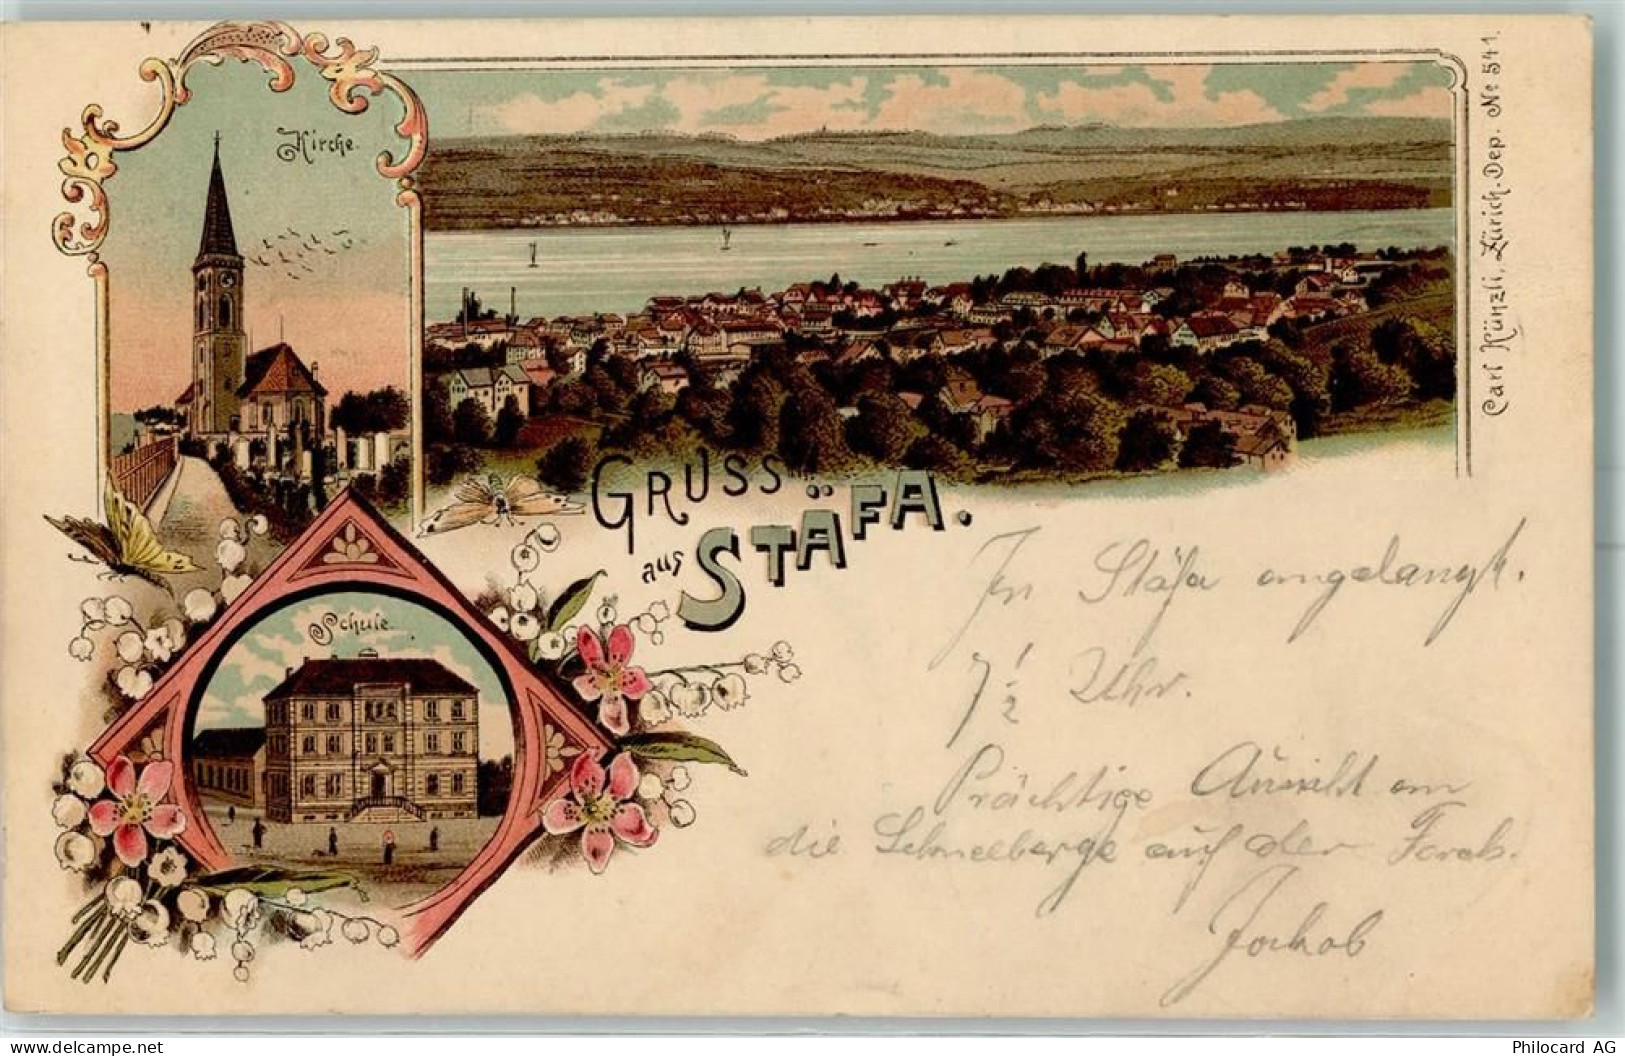 Kirche.
Carl Künzli, Zürich. Dep. No 541.
GRUSS
aus STÄFA.
Schule.
In Stäfa angelangt.
7 1/2 Uhr.
Prächtige Aussicht an
die Schneeberge auf der Forch.
Jackob
delcampe.net
Philocard AG